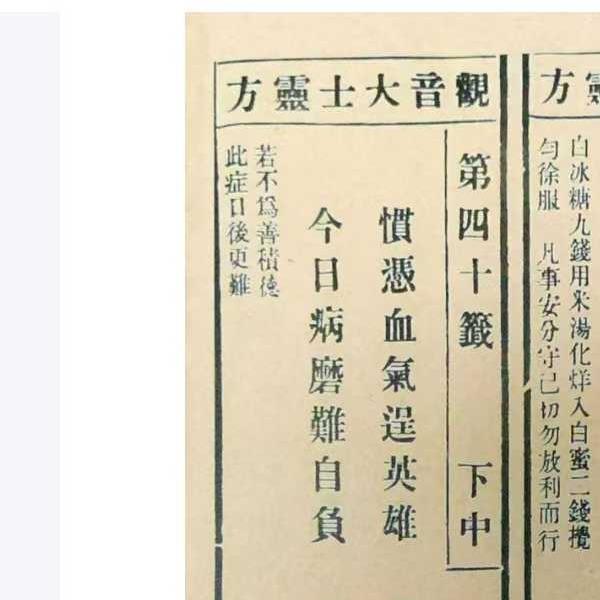 靈方
白冰糖九錢用米湯化烊入白蜜二錢攪
勻徐服 凡事安分守己切勿放利而行
觀音大士靈方
第四十籤 下中
慣憑血氣逞英雄
今日病磨難自負
若不爲善積德
此症日後更難